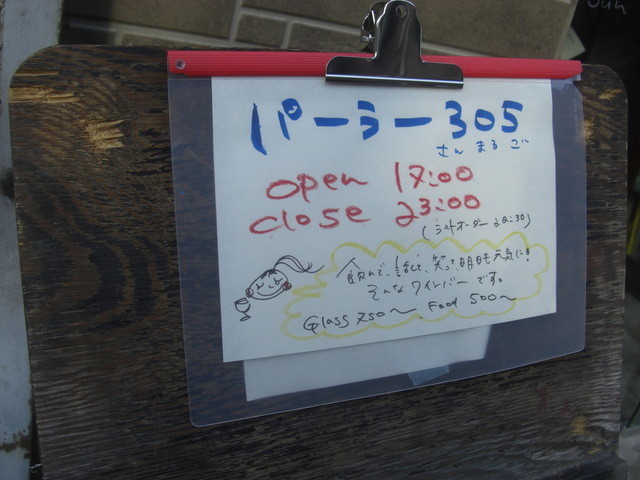 パーラー305
さんまるご
open 17:00
close 23:00
(ラストオーダー22:30)
飲んで、話して、笑って、明日も元気に!
そんなワインバーです。
Glass 750〜 Food 500〜